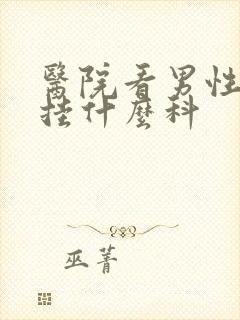 醫院看男性
挂什麼科
巫菁